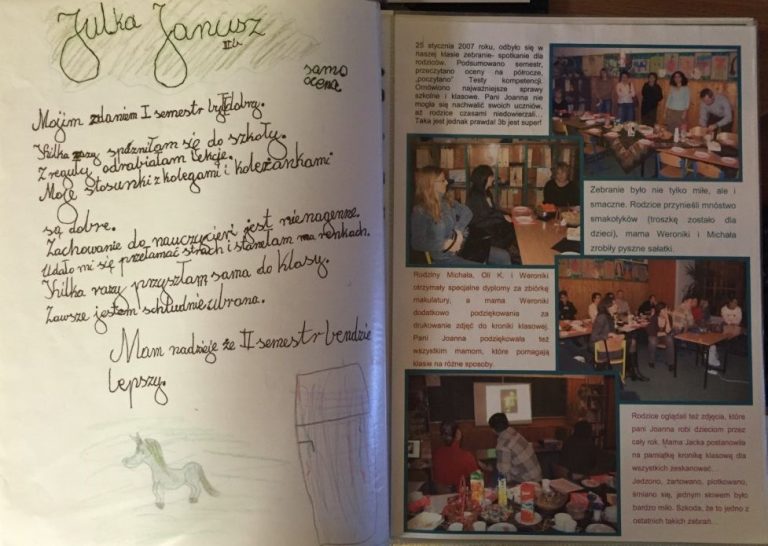 Julka Janusz
III b.
samo
ocena
Mojim zdaniem I semestr był dobry.
Kilka razy spóźniłam się do szkoły.
Z reguły odrabiałam lekcje.
Moje stosunki z kolegami i koleżankami
są dobre.
Zachowanie do nauczycieri jest nienagenne.
Udało mi się przełamać strach i stanełam na renkach.
Kilka razy przyszłam sama do klasy.
Zawsze jestem schludnie ubrana.
Mam nadzieje że II semestr bendzie
lepszy.
25 stycznia 2007 roku, odbyło się w
naszej klasie zebranie- spotkanie dla
rodziców. Podsumowano semestr,
przeczytano oceny na półrocze,
„poczytano" Testy kompetencji.
Omówiono najważniejsze sprawy
szkolne i klasowe. Pani Joanna nie
mogła się nachwalić swoich uczniów,
aż rodzice czasami niedowierzali...
Taka jest jednak prawda! 3b jest super!
Zebranie było nie tylko miłe, ale i
smaczne. Rodzice przynieśli mnóstwo
smakołyków (troszkę zostało dla
dzieci), mama Weroniki i Michała
zrobiły pyszne sałatki.
Rodziny Michała, Oli K. i Weroniki
otrzymały specjalne dyplomy za zbiórkę
makulatury, a mama Weroniki
dodatkowo podziękowania za
drukowanie zdjęć do kroniki klasowej.
Pani Joanna podziękowała też
wszystkim mamom, które pomagają
klasie na różne sposoby.
Rodzice oglądali też zdjęcia, które
pani Joanna robi dzieciom przez
cały rok. Mama Jacka postanowiła
na pamiątkę kronikę klasową dla
wszystkich zeskanować...
Jedzono, żartowano, plotkowano,
śmiano się, jednym słowem było
bardzo miło. Szkoda, że to jedno z
ostatnich takich zebrań...